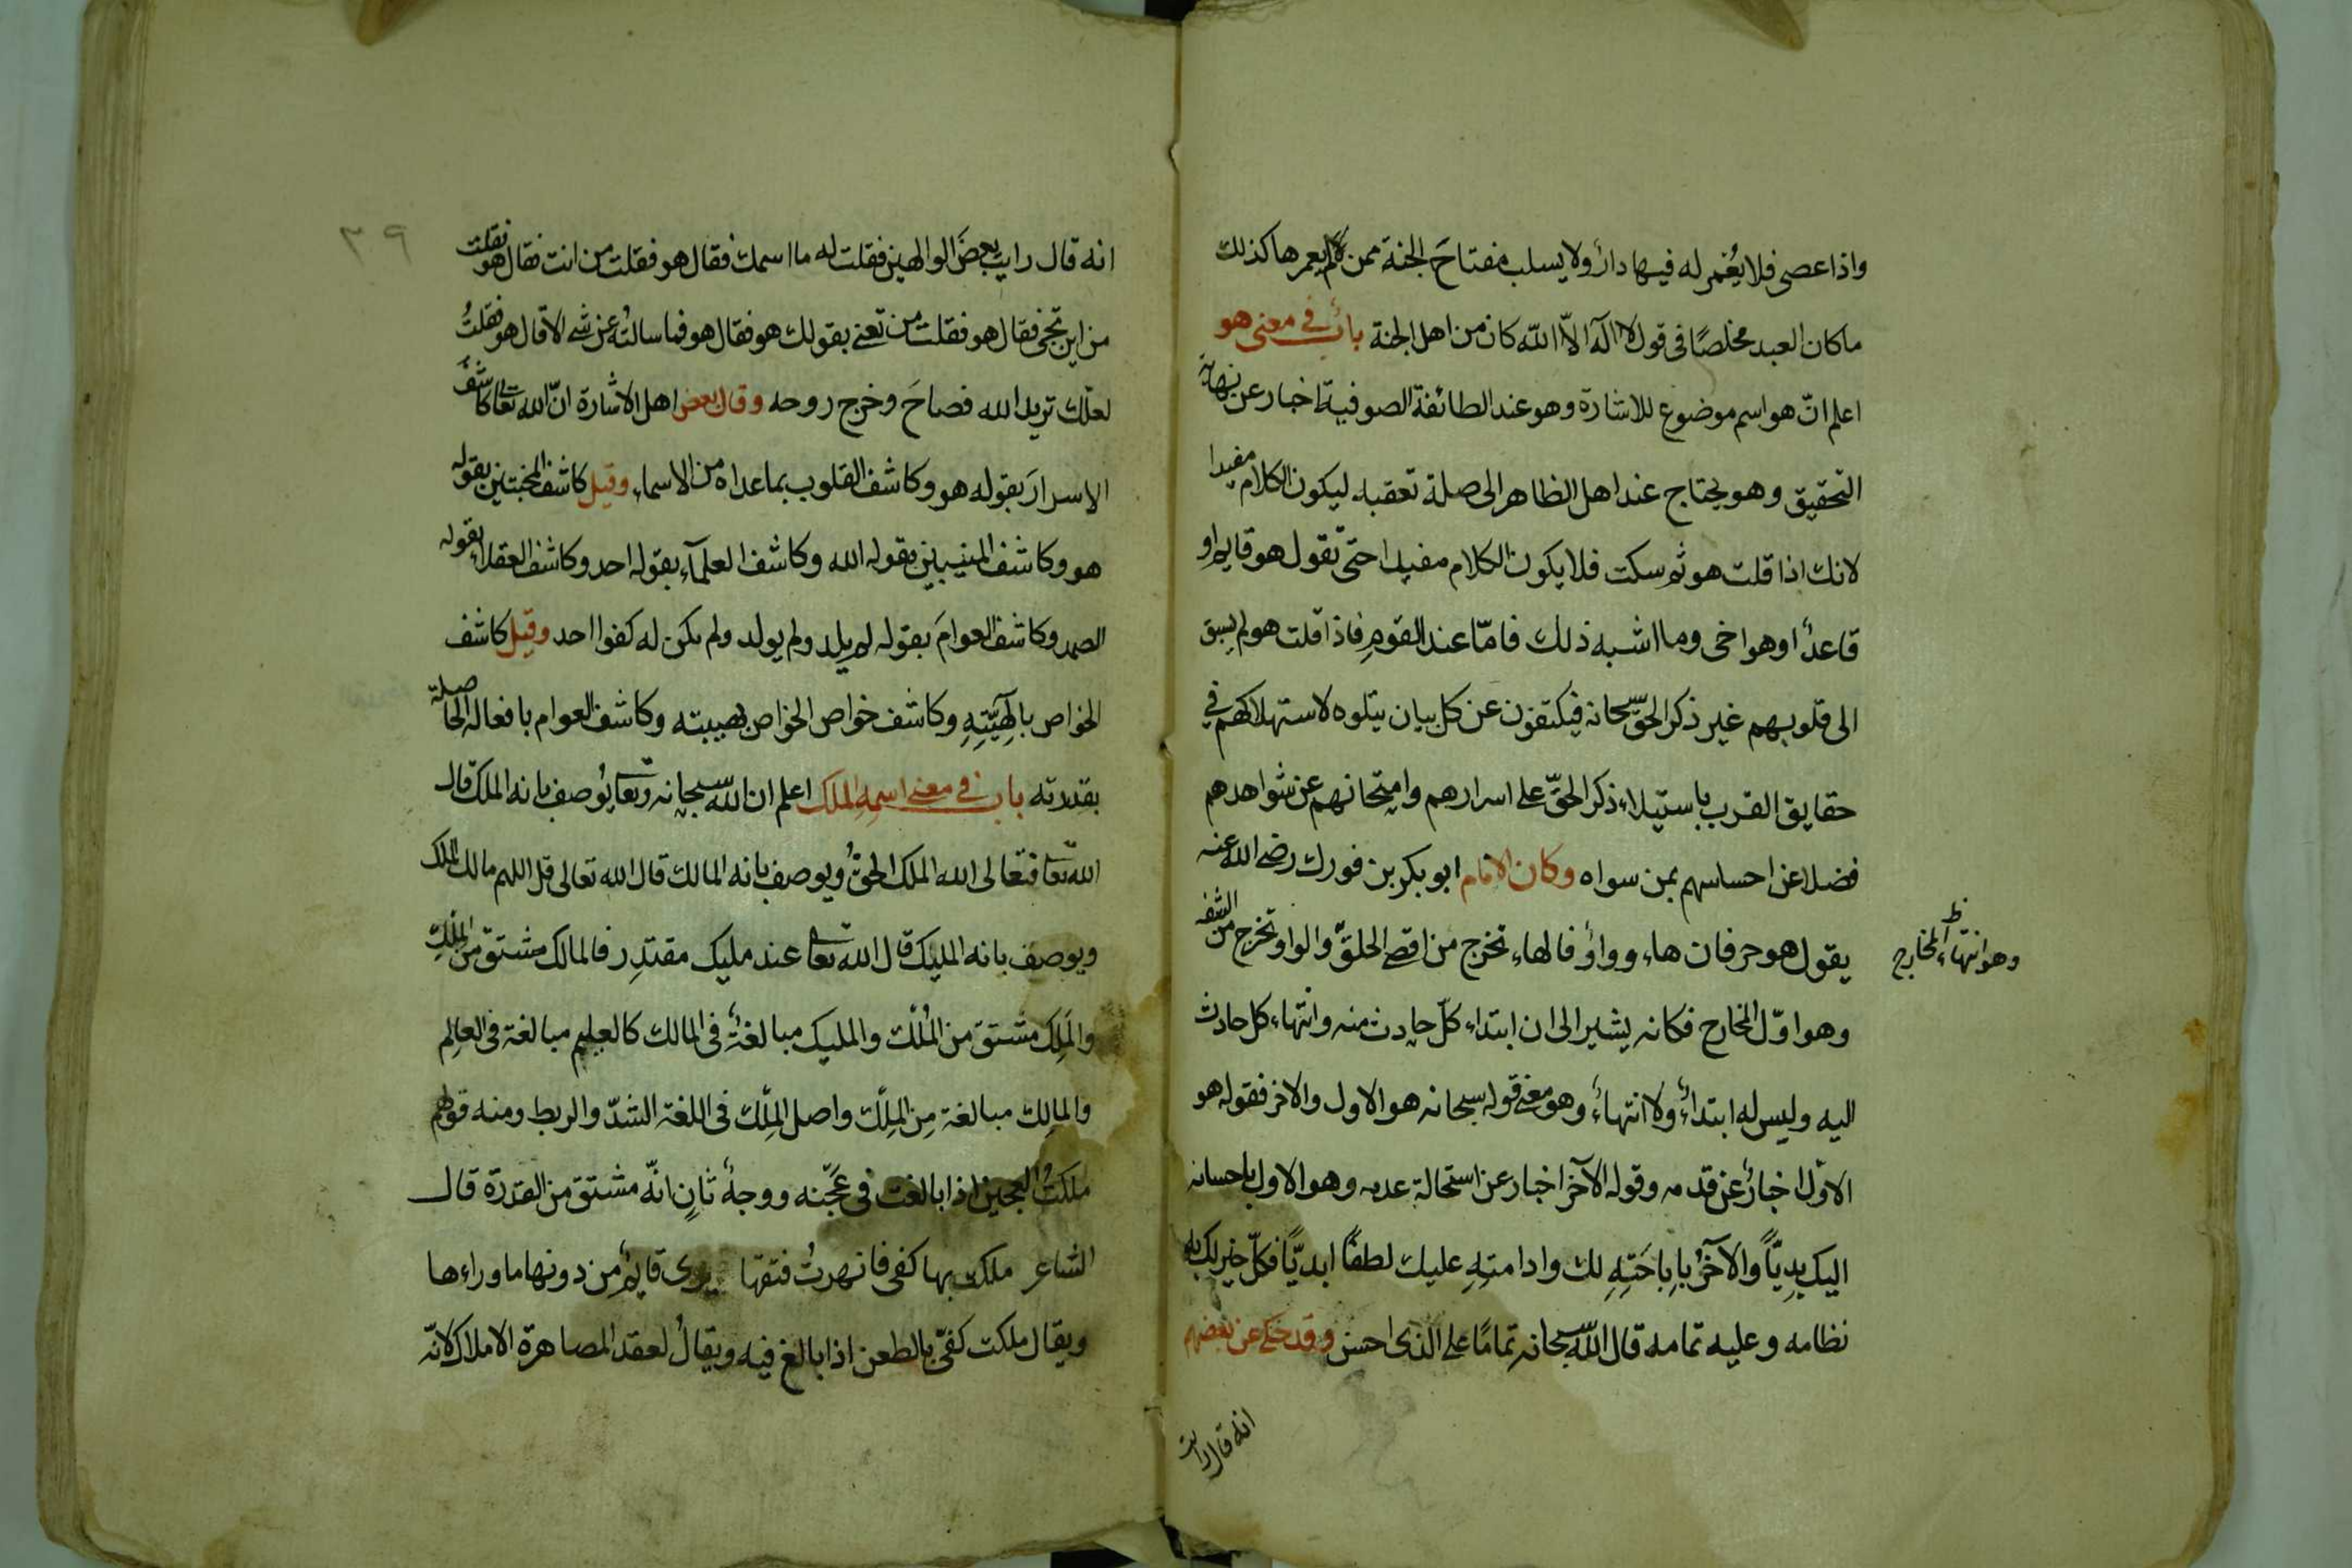 واذا عصى فلا يُغمر له فيها دارٌ ولا يسلب مفتاحَ الجنة ممن لم يعمرها كذلك
ما كان العبد مخلصًا فى قول لا اله الّا الله كان من اهل الجنة بابٌ فى معنى هو
اعلم انّ هو اسم موضوع للاشارة وهو عند الطائفة الصوفية اخبار عن نهاية
التحقيق وهو يحتاج عند اهل الظاهر الى صلة تعقبه ليكون الكلام مفيدا
لانك اذا قلت هو ثم سكت فلا يكون الكلام مفيدا حتّى تقول هو قايم او
قاعدٌ او هو اخى وما اشبه ذلك فامّا عند القومِ فاذا قلت هو لم يسبق
الى قلوبهم غير ذكر الحق سبحانه فيكتفون عن كل بيان يتلوه لاستهلاكهم فى
حقايق القرب باستيلاء ذكر الحقّ على اسرارهم وامتحانهم عن شواهدهم
فضلا عن احساسهم بمن سواه وكان الامام ابو بكر بن فورك رضى الله عنه
يقول هو حرفان هاء وواوٌ فالهاء تخرج من اقصى الحلق والواو تخرج من الشفه
وهو انتهاء المخارج ظ
وهو اوّل المخارج فكانه يشير الى ان ابتداء كلّ حادث منه وانتهاء كل حادث
اليه وليس له ابتداءٌ ولا انتهاءٌ وهو معنى قوله سبحانه هو الاول والاخر فقوله هو
الاول اخبارٌ عن قدمه وقوله الآخر اخبار عن استحالة عدمه وهو الاول باحسانه
اليك بديًّا والآخرُ باباحَتِهِ لك وادامتهِ عليك لطفًا ابديًّا فكلّ خير لك به
نظامه وعليه تمامه قال الله سبحانه تمامًا على الذى احسن وقد حكى عن بعضهم
انه قال رايت
٣٩
انه قال رايت بعضَ الوالهين فقلت له ما اسمك فقال هو فقلت من انت فقال هو فقلت
من اين تجى فقال هو فقلت من تعنى بقولك هو فقال هو فما سالتُه عن شى الا قال هو فقلتُ
لعلّك تريد الله فصاحَ وخرج روحه وقال بعض اهل الاشارة انّ الله تعالى كاشَفَ
الاسرارَ بقوله هو وكاشف القلوب بما عداه من الاسماء وقيل كاشف المحبتين بقوله
هو وكاشف المنيبين بقوله الله وكاشف العلمآء بقوله احد وكاشف العقلاء بقوله
الصمد وكاشف العوامَ بقوله لم يلد ولم يولد ولم يكن له كفوا احد وقيل كاشف
الخواص بالهيَّتِهِ وكاشف خواص الخواص بهيبته وكاشف العوام بافعاله الحاصلة
بقدرته باب فى معنى اسمِهِ الملك اعلم ان الله سبحانه وتعالى يُوصف بانه الملك قال
الله تعالى فتعالى الله الملك الحقُّ ويوصف بانه المالك قال الله تعالى قل اللهم مالك الملك
ويوصف بانه المليك قال الله تعالى عند مليك مقتدِر فالمالك مشتق من المِلك
والمَلِك مشتق من المُلْك والمليك مبالغةٌ فى المالك كالعليم مبالغة فى العالِم
والمالِك مبالغة مِن المِلْك واصل المِلْك فى اللغة الشدّ والربط ومنه قولهم
ملكتُ العجين اذا بالغت فى عَجْنه ووجهٌ ثانٍ انّه مشتق من القدرة قال
الشاعر ملكت بها كفى فانهرتُ فتقها يرى قايمٌ من دونها ما وراءها
ويقال ملكت كفى بالطعن اذا بالغ فيه ويقالُ لعقد المصاهرة الاملاك لانّه